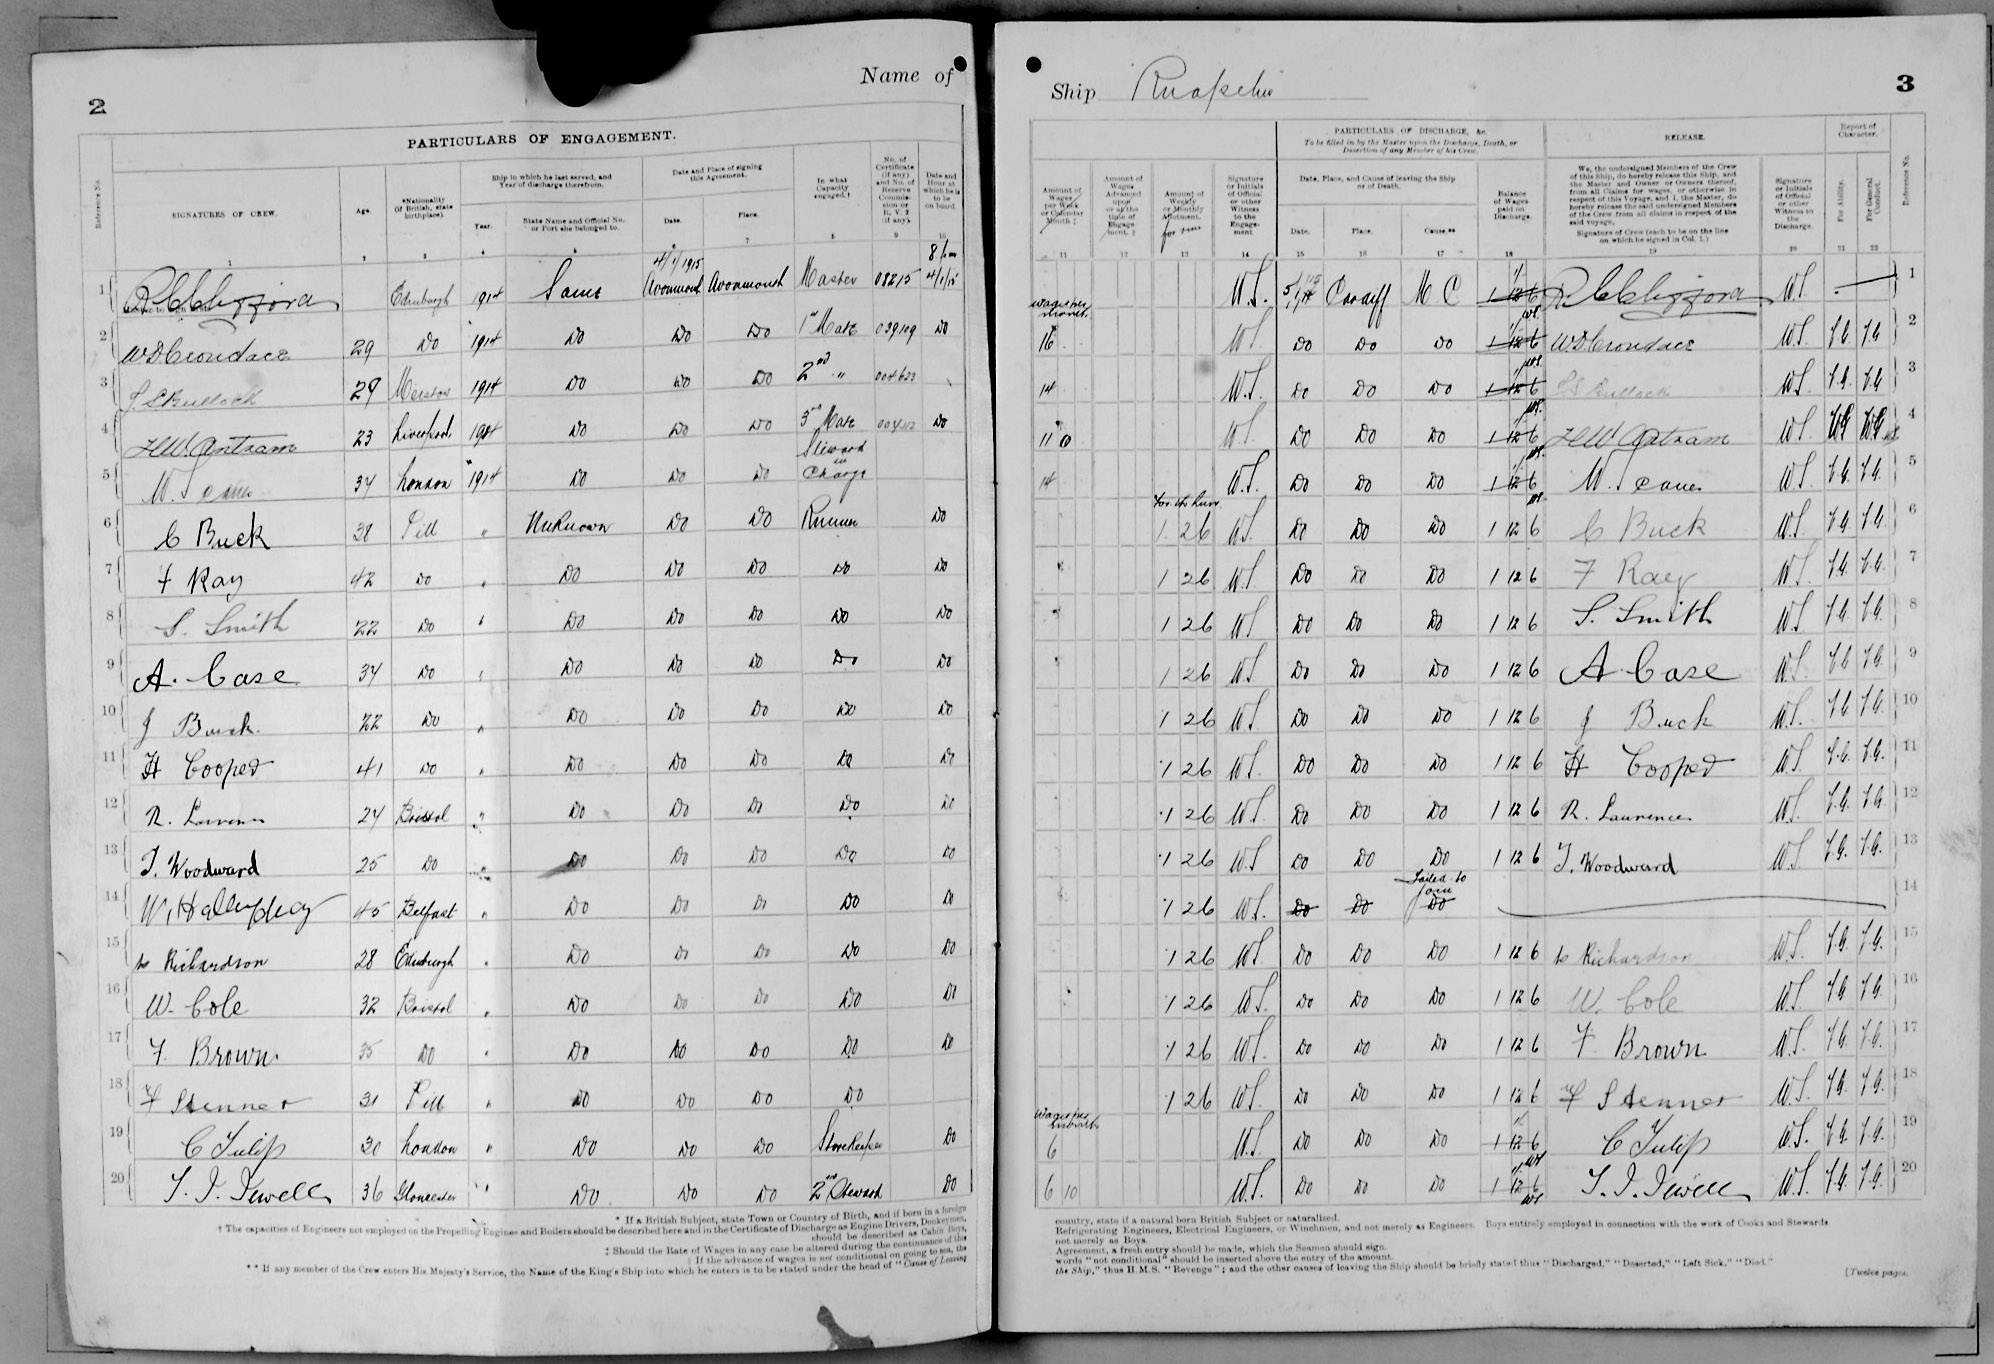 2
Name of
PARTICULARS OF ENGAGEMENT.
Reference No.
SIGNATURES OF CREW.
Age.
*Nationality (If British, state birthplace).
Ship in which he last served, and Year of discharge therefrom.
Year.
State Name and Official No. or Port she belonged to.
Date and Place of signing this Agreement.
Date.
Place.
In what Capacity engaged.†
No. of Certificate (if any) and No. of Reserve Commission or R.V.2 (if any).
Date and Hour at which he is to be on board.
1 Edinburgh 1914 Same 4/1/1915 Avonmouth Avonmouth Master 08215 8 pm 4/1/15
2 W D Croudace 29 Do 1914 Do Do Do 1st Mate 039109 Do
3 J S Bullock 29 1914 Do Do Do 2nd " 004623
4 H W Antram 23 Liverpool 1914 Do Do Do 3rd Mate Do
5 W. 34 London 1914 Do Do Do Steward in Charge
6 C Buck 38 Pill " Unknown Do Do Runner Do
7 F Ray 42 Do " Do Do Do Do Do
8 S. Smith 22 Do " Do Do Do Do Do
9 A. Case 34 Do " Do Do Do Do Do
10 J Buck. 22 Do " Do Do Do Do Do
11 H Cooper 41 Do " Do Do Do Do Do
12 R. 24 Bristol " Do Do Do Do Do
13 T. Woodward 25 Do " Do Do Do Do Do
14 W. 45 Belfast " Do Do Do Do Do
15 Richardson 28 Edinburgh " Do Do Do Do Do
16 W. Cole 32 Bristol " Do Do Do Do Do
17 F. Brown. 35 Do " Do Do Do Do Do
18 F Stenner 31 Pill " Do Do Do Do
19 C Tulip 30 London " Do Do Do Storekeeper Do
20 T. J. Jewell 36 Gloucester " Do Do Do 2nd Steward Do
* If a British Subject, state Town or Country of Birth, and if born in a foreign
† The capacities of Engineers not employed on the Propelling Engines and Boilers should be described here and in the Certificate of Discharge as Engine Drivers, Donkeymen,
should be described as Cabin Boys,
‡ Should the Rate of Wages in any case be altered during the continuance of this
| If the advance of wages is not conditional on going to sea, the
** If any member of the Crew enters His Majesty's Service, the Name of the King's Ship into which he enters is to be stated under the head of "Cause of Leaving
Ship
3
PARTICULARS OF DISCHARGE, &c.
To be filled in by the Master upon the Discharge, Death, or Desertion of any Member of his Crew.
RELEASE.
Report of Character.
Amount of Wages per Week or Calendar Month ‡
Amount of Wages Advanced upon or at the time of Engagement. ‡
Amount of Weekly or Monthly Allotment.
for run
Signature or Initials of Official or other Witness to the Engagement
Date, Place, and Cause of leaving the Ship or of Death.
Date.
Place.
Cause.**
Balance of Wages paid on Discharge.
We, the undersigned Members of the Crew of this Ship, do hereby release this Ship, and the Master and Owner or Owners thereof, from all Claims for wages, or otherwise in respect of this Voyage, and I, the Master, do hereby release the said undersigned Members of the Crew from all claims in respect of the said voyage.
Signature of Crew (each to be on the line on which he signed in Col. 1.)
Signature or Initials of Official or other Witness to the Discharge.
For Ability.
For General Conduct.
Reference No.
11 12 13 14 15 16 17 18 19 20 21 22
W.S. Cardiff M C 1 12 6 W.S. 1
Wages per month
16 W.S. Do Do Do 1 12 6 W D Croudace W.S. V.G. V.G 2
14 W.S. Do Do Do 1 12 6 J S Bullock W.S. V.G. V.G 3
11 0 W.S. Do Do Do 1 12 6 H W Antram W.S. VG VG 4
14 W.S. Do Do Do 1 12 6 W. W.S. V.G. V.G. 5
For the Run
1 2 6 W.S. Do Do Do 1 12 6 C Buck W.S. V.G. V.G. 6
1 2 6 W.S. Do Do Do 1 12 6 F Ray W.S. V.G. V.G. 7
1 2 6 W.S. Do Do Do 1 12 6 S. Smith W.S. V.G. V.G. 8
1 2 6 W.S. Do Do Do 1 12 6 A Case W.S. V.G. V.G. 9
1 2 6 W.S. Do Do Do 1 12 6 J Buck W.S. V.G. V.G. 10
1 2 6 W.S. Do Do Do 1 12 6 H Cooper W.S. V.G. V.G. 11
1 2 6 W.S. Do Do Do 1 12 6 R. Laurence W.S. V.G. V.G. 12
1 2 6 W.S. Do Do Do 1 12 6 T. Woodward W.S. V.G. V.G. 13
1 2 6 W.S. Do Do Failed to join Do 14
1 2 6 W.S. Do Do Do 1 12 6 Richardson W.S. V.G. V.G. 15
1 2 6 W.S. Do Do Do 1 12 6 W. Cole W.S. V.G. V.G. 16
1 2 6 W.S. Do Do Do 1 12 6 F. Brown W.S. V.G. V.G. 17
1 2 6 W.S. Do Do Do 1 12 6 F Stenner W.S. V.G. V.G. 18
Wages per month
6 W.S. Do Do Do 1 12 6 C Tulip W.S. V.G. V.G. 19
6 10 W.S. Do Do Do 1 12 6 T. J. Jewell W.S. V.G. V.G. 20
country, state if a natural born British Subject or naturalised.
Refrigerating Engineers, Electrical Engineers, or Winchmen, and not merely as Engineers. Boys entirely employed in connection with the work of Cooks and Stewards
not merely as Boys.
Agreement, a fresh entry should be made, which the Seamen should sign.
words "not conditional" should be inserted above the entry of the amount.
the Ship," thus H.M.S. "Revenge"; and the other causes of leaving the Ship should be briefly stated thus "Discharged," "Deserted," "Left Sick," "Died."
[Twelve pages.